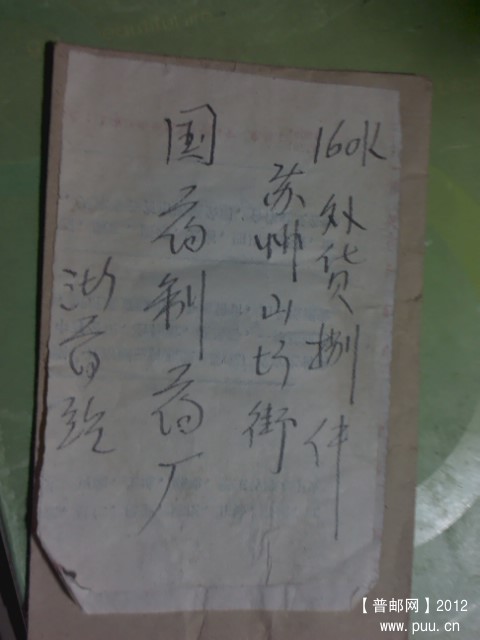 160K 外货捌件
苏州山圹街
国药制药厂
【普邮网】2012
www.puu.cn